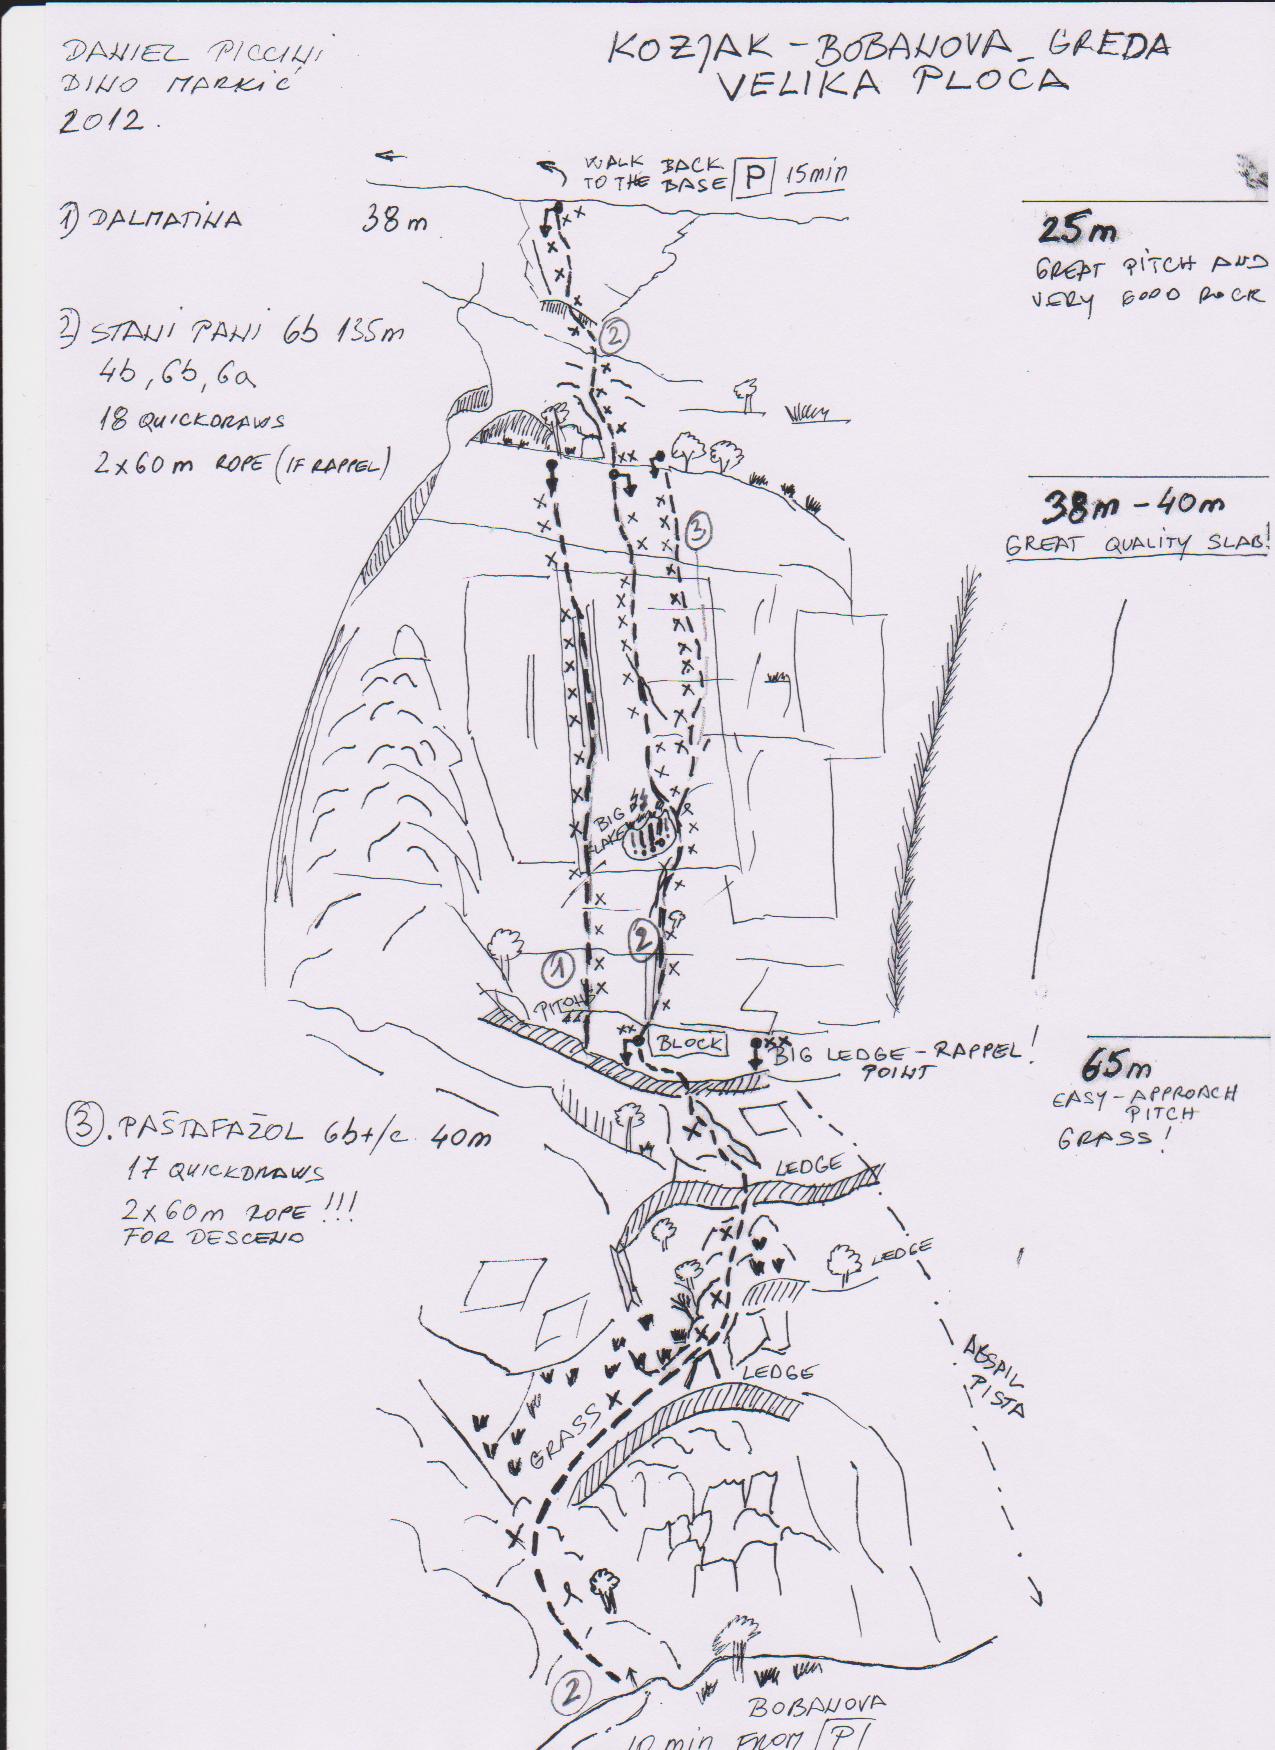 DANIEL PICCINI
DINO MARKIĆ
2012.
KOZJAK - BOBANOVA GREDA
VELIKA PLOČA
WALK BACK
TO THE BASE P 15min
1) DALMATINA 38m
25m
GREAT PITCH AND
VERY GOOD ROCK
2) STANI PANI 6b 135m
4b, 6b, 6a
18 QUICKDRAWS
2x60m ROPE (IF RAPPEL)
2
3
38m - 40m
GREAT QUALITY SLAB!
BIG
FLAKE
!!!!
2
1
PITOHS
BLOCK
BIG LEDGE - RAPPEL!
POINT
65m
EASY-APPROACH
PITCH
GRASS!
3. PAŠTAFAŽOL 6b+/c 40m
17 QUICKDRAWS
2x60m ROPE !!!
FOR DESCEND
LEDGE
LEDGE
ABSAIL
PISTA
LEDGE
GRASS
2
BOBANOVA
10 min FROM P